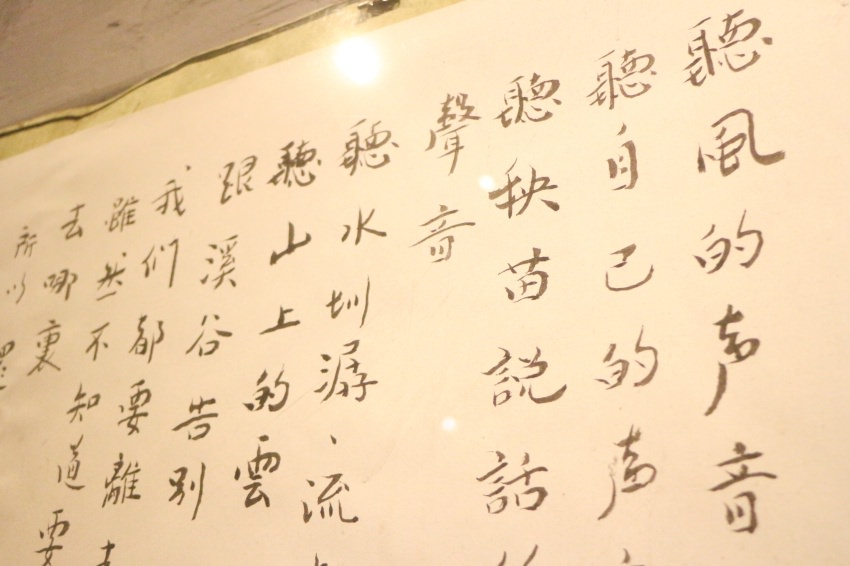 聽風的声音
聽自己的声
聽秧苗説話
聲音
聽水圳潺、流
聽山上的雲
跟溪谷告別
我们都要離
雖然不知道要
去哪裏
所以